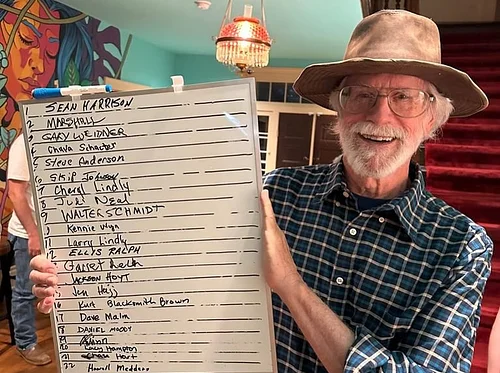 1 SEAN HARRISON
2 MARSHALL
3 GARY WEIDNER
4 Chava Schacter
5 Steve Anderson
6 Skip Johnson
7 Cheryl Lindly
8 Juki Neal
9 WALTER SCHMIDT
Kennie Wynn
11 Larry Lindly
12 ELLYS RALPH
Garret
JACKSON HOYT
Jen Haji
16 Kurt Blacksmith Brown
17 Dave Malm
18 DANIEL MOODY
19
20 Casey Hampton
21 Hart
22 Howell Meddows